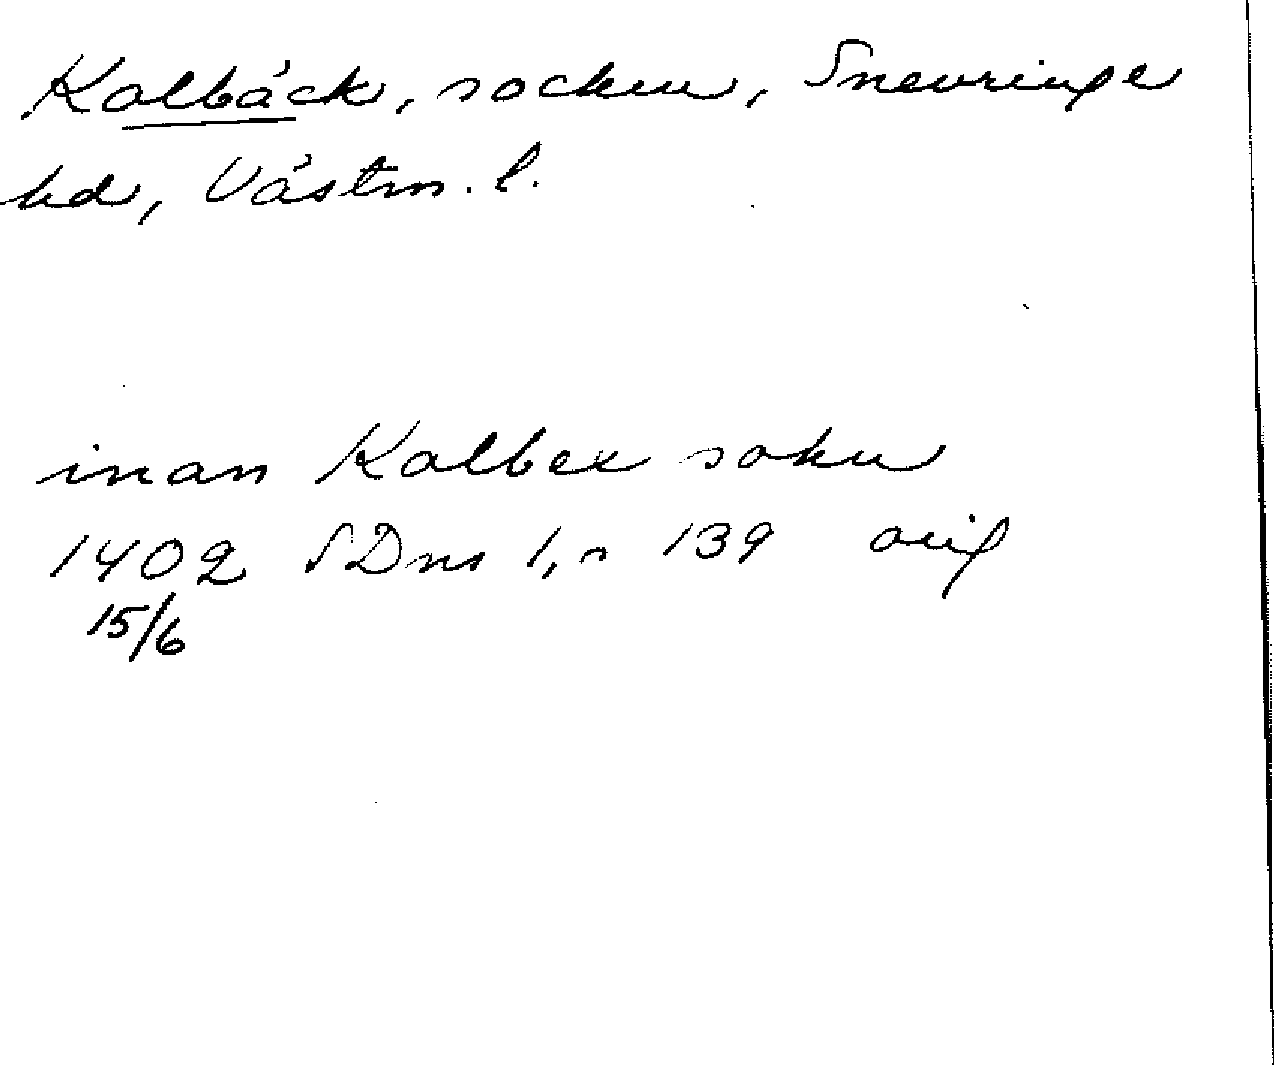 Kolbäck, socken, Snevringe
hd, Västm. l.
inan Kolbex sokn
1402 SDns 1, s 139 orig
15/6